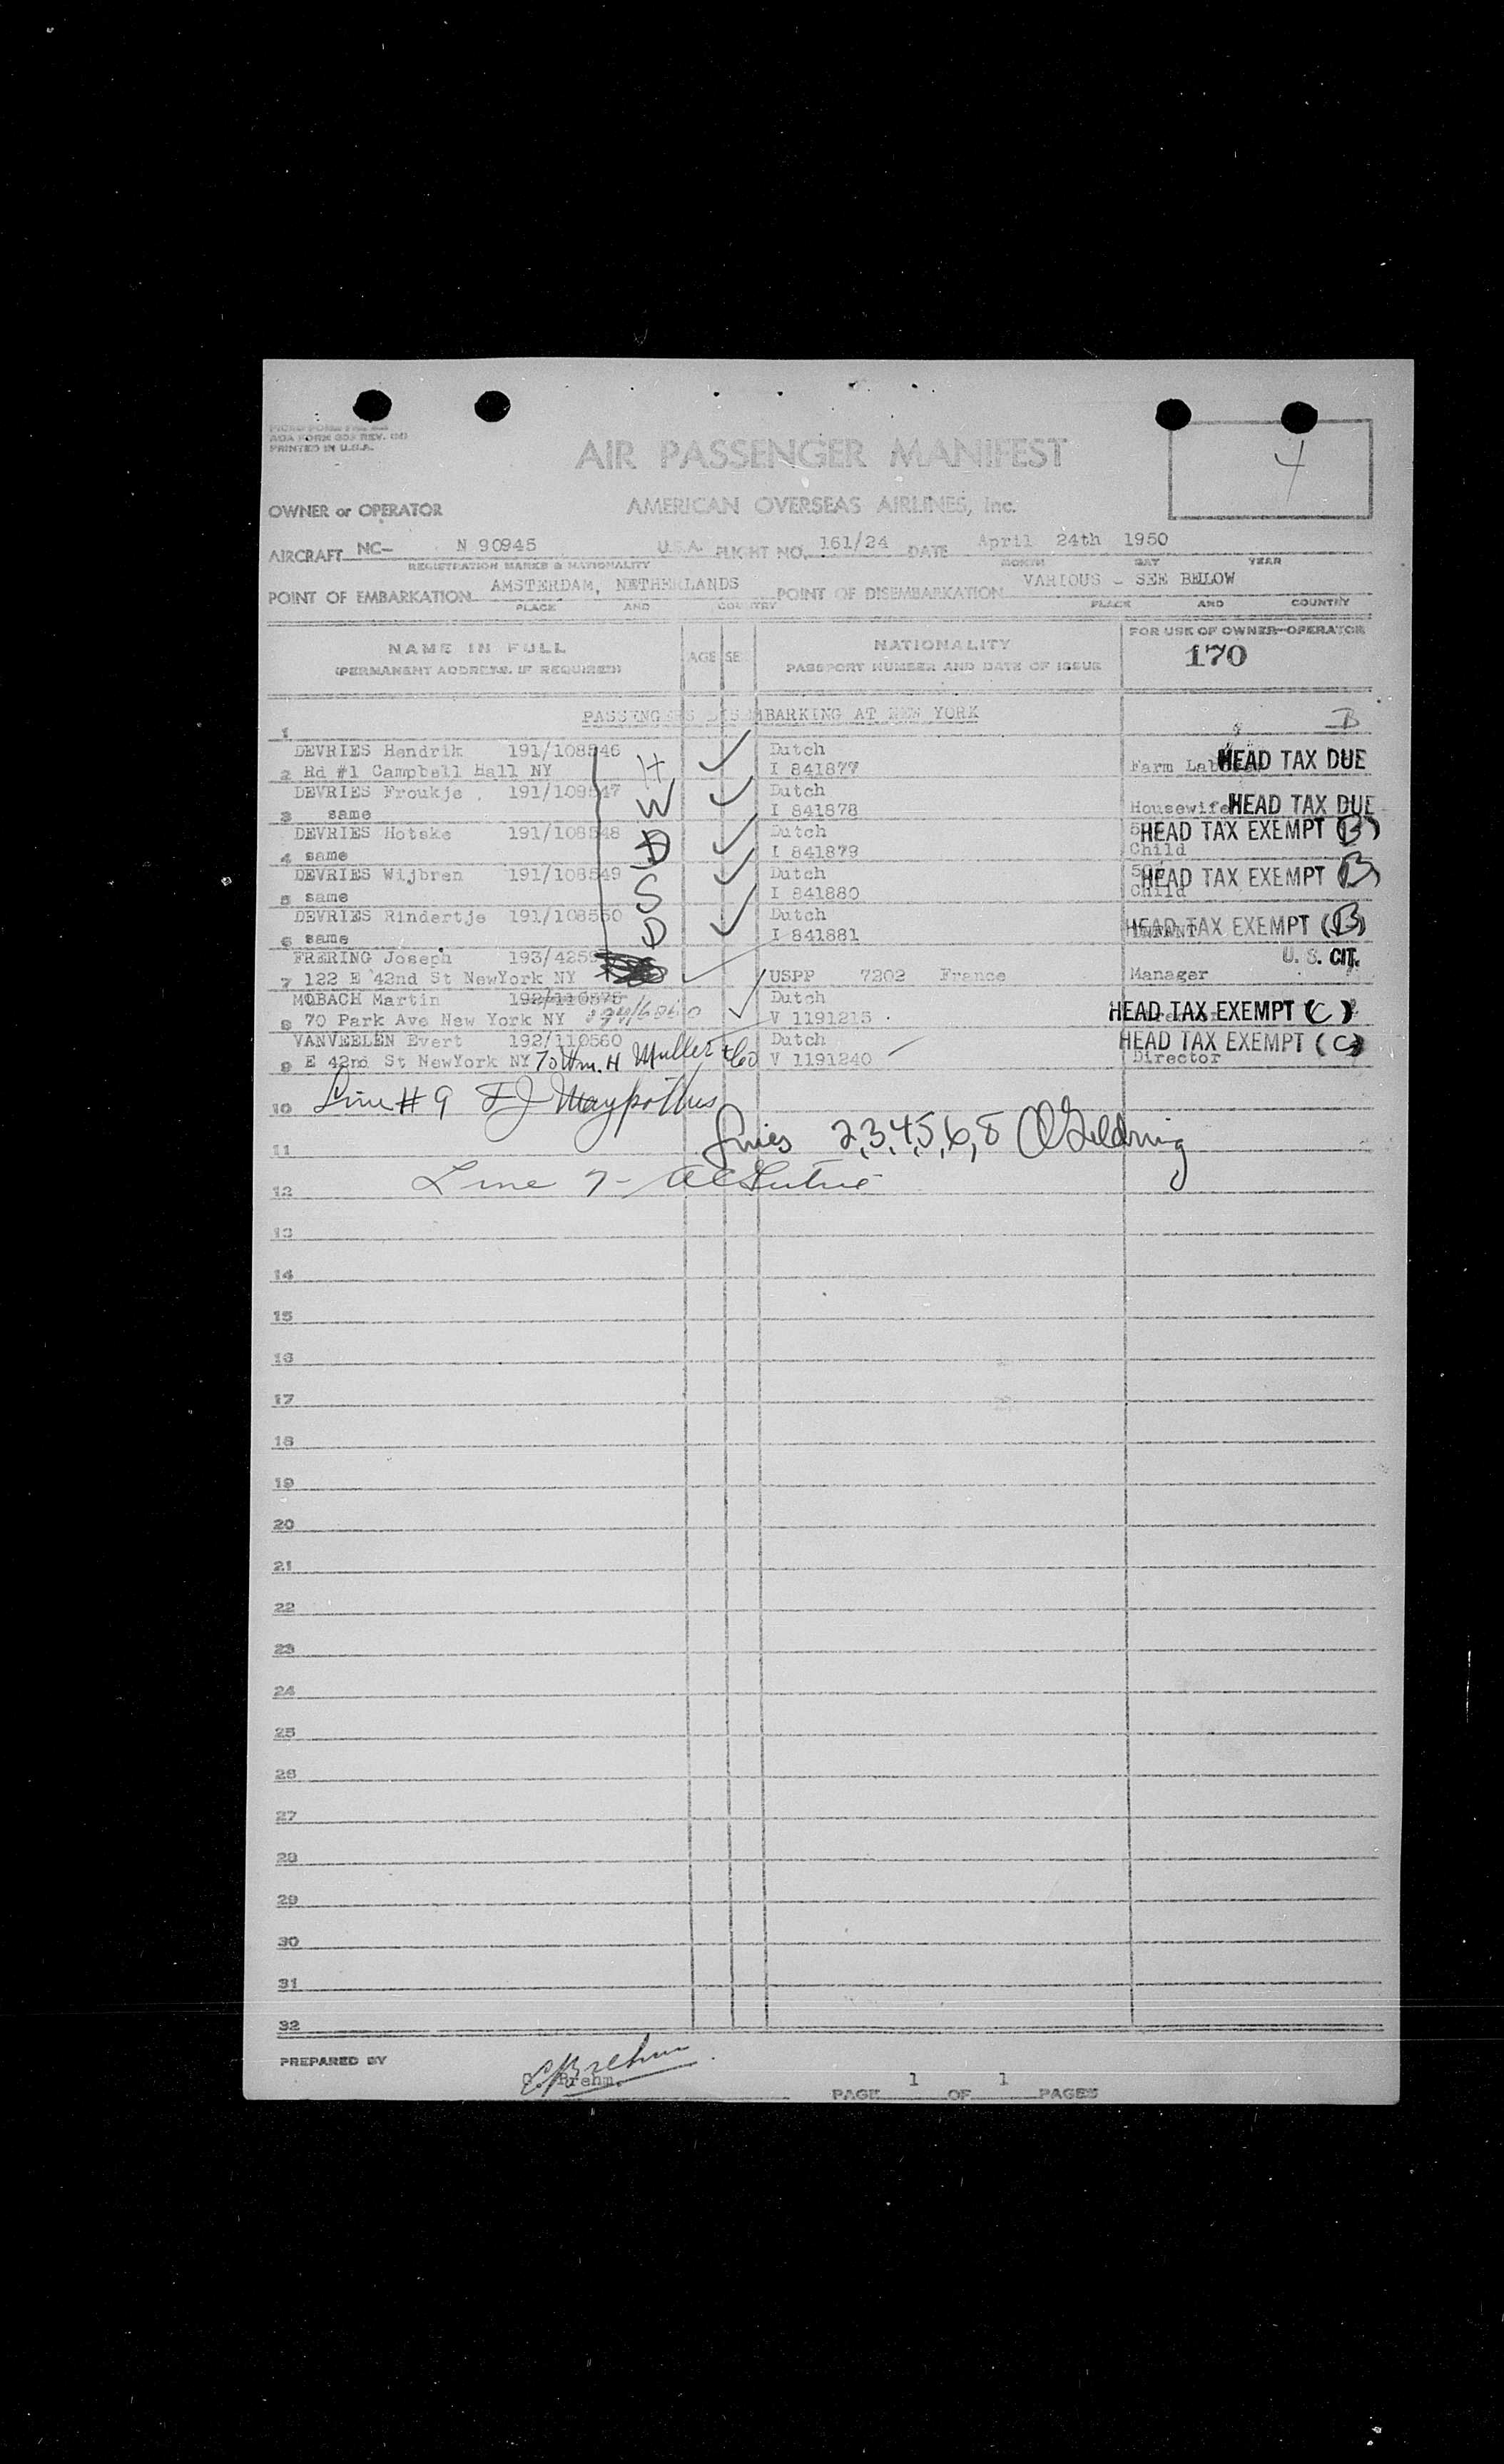 AOA FORM
PRINTED IN U.S.A.
AIR PASSENGER MANIFEST
4
OWNER or OPERATOR AMERICAN OVERSEAS AIRLINES, Inc.
AIRCRAFT NC- N 90945 U.S.A. FLIGHT NO. 161/24 DATE April 24th 1950
REGISTRATION MARKS & NATIONALITY MONTH DAY YEAR
POINT OF EMBARKATION AMSTERDAM, NETHERLANDS POINT OF DISEMBARKATION VARIOUS - SEE BELOW
PLACE AND COUNTRY PLACE AND COUNTRY
NAME IN FULL AGE SE NATIONALITY FOR USE OF OWNER-OPERATOR
(PERMANENT ADDRESS, IF REQUIRED) PASSPORT NUMBER AND DATE OF ISSUE 170
PASSENGERS DISEMBARKING AT NEW YORK
1 B
DEVRIES Hendrik 191/108546 H Dutch HEAD TAX DUE
2 Rd #1 Campbell Hall NY I 841877 Farm
DEVRIES Froukje 191/108547 W Dutch
3 same I 841878 Housewife HEAD TAX DUE
DEVRIES Hotske 191/108548 D Dutch HEAD TAX EXEMPT (B)
4 same I 841879 Child
DEVRIES Wijbren 191/108549 S Dutch HEAD TAX EXEMPT B)
5 same I 841880 Child
DEVRIES Rindertje 191/108550 D Dutch HEAD TAX EXEMPT (B)
6 same I 841881 INFANT
FRERING Joseph U. S. CIT.
7 122 E 42nd St NewYork NY USPP 7202 France Manager
MOBACH Martin 192/110575 Dutch
8 70 Park Ave New York NY V 1191215 HEAD TAX EXEMPT (C)
VANVEELEN Evert 192/110560 Dutch HEAD TAX EXEMPT (C)
9 E 42nd St NewYork NY Wm. H Muller & Co V 1191240 Director
10 Line # 9
11 Lines 2,3,4,5,6,8
12 Line 7-
13
14
15
16
17
18
19
20
21
22
23
24
25
26
27
28
29
30
31
32
PREPARED BY Brehm
PAGE 1 OF 1 PAGES